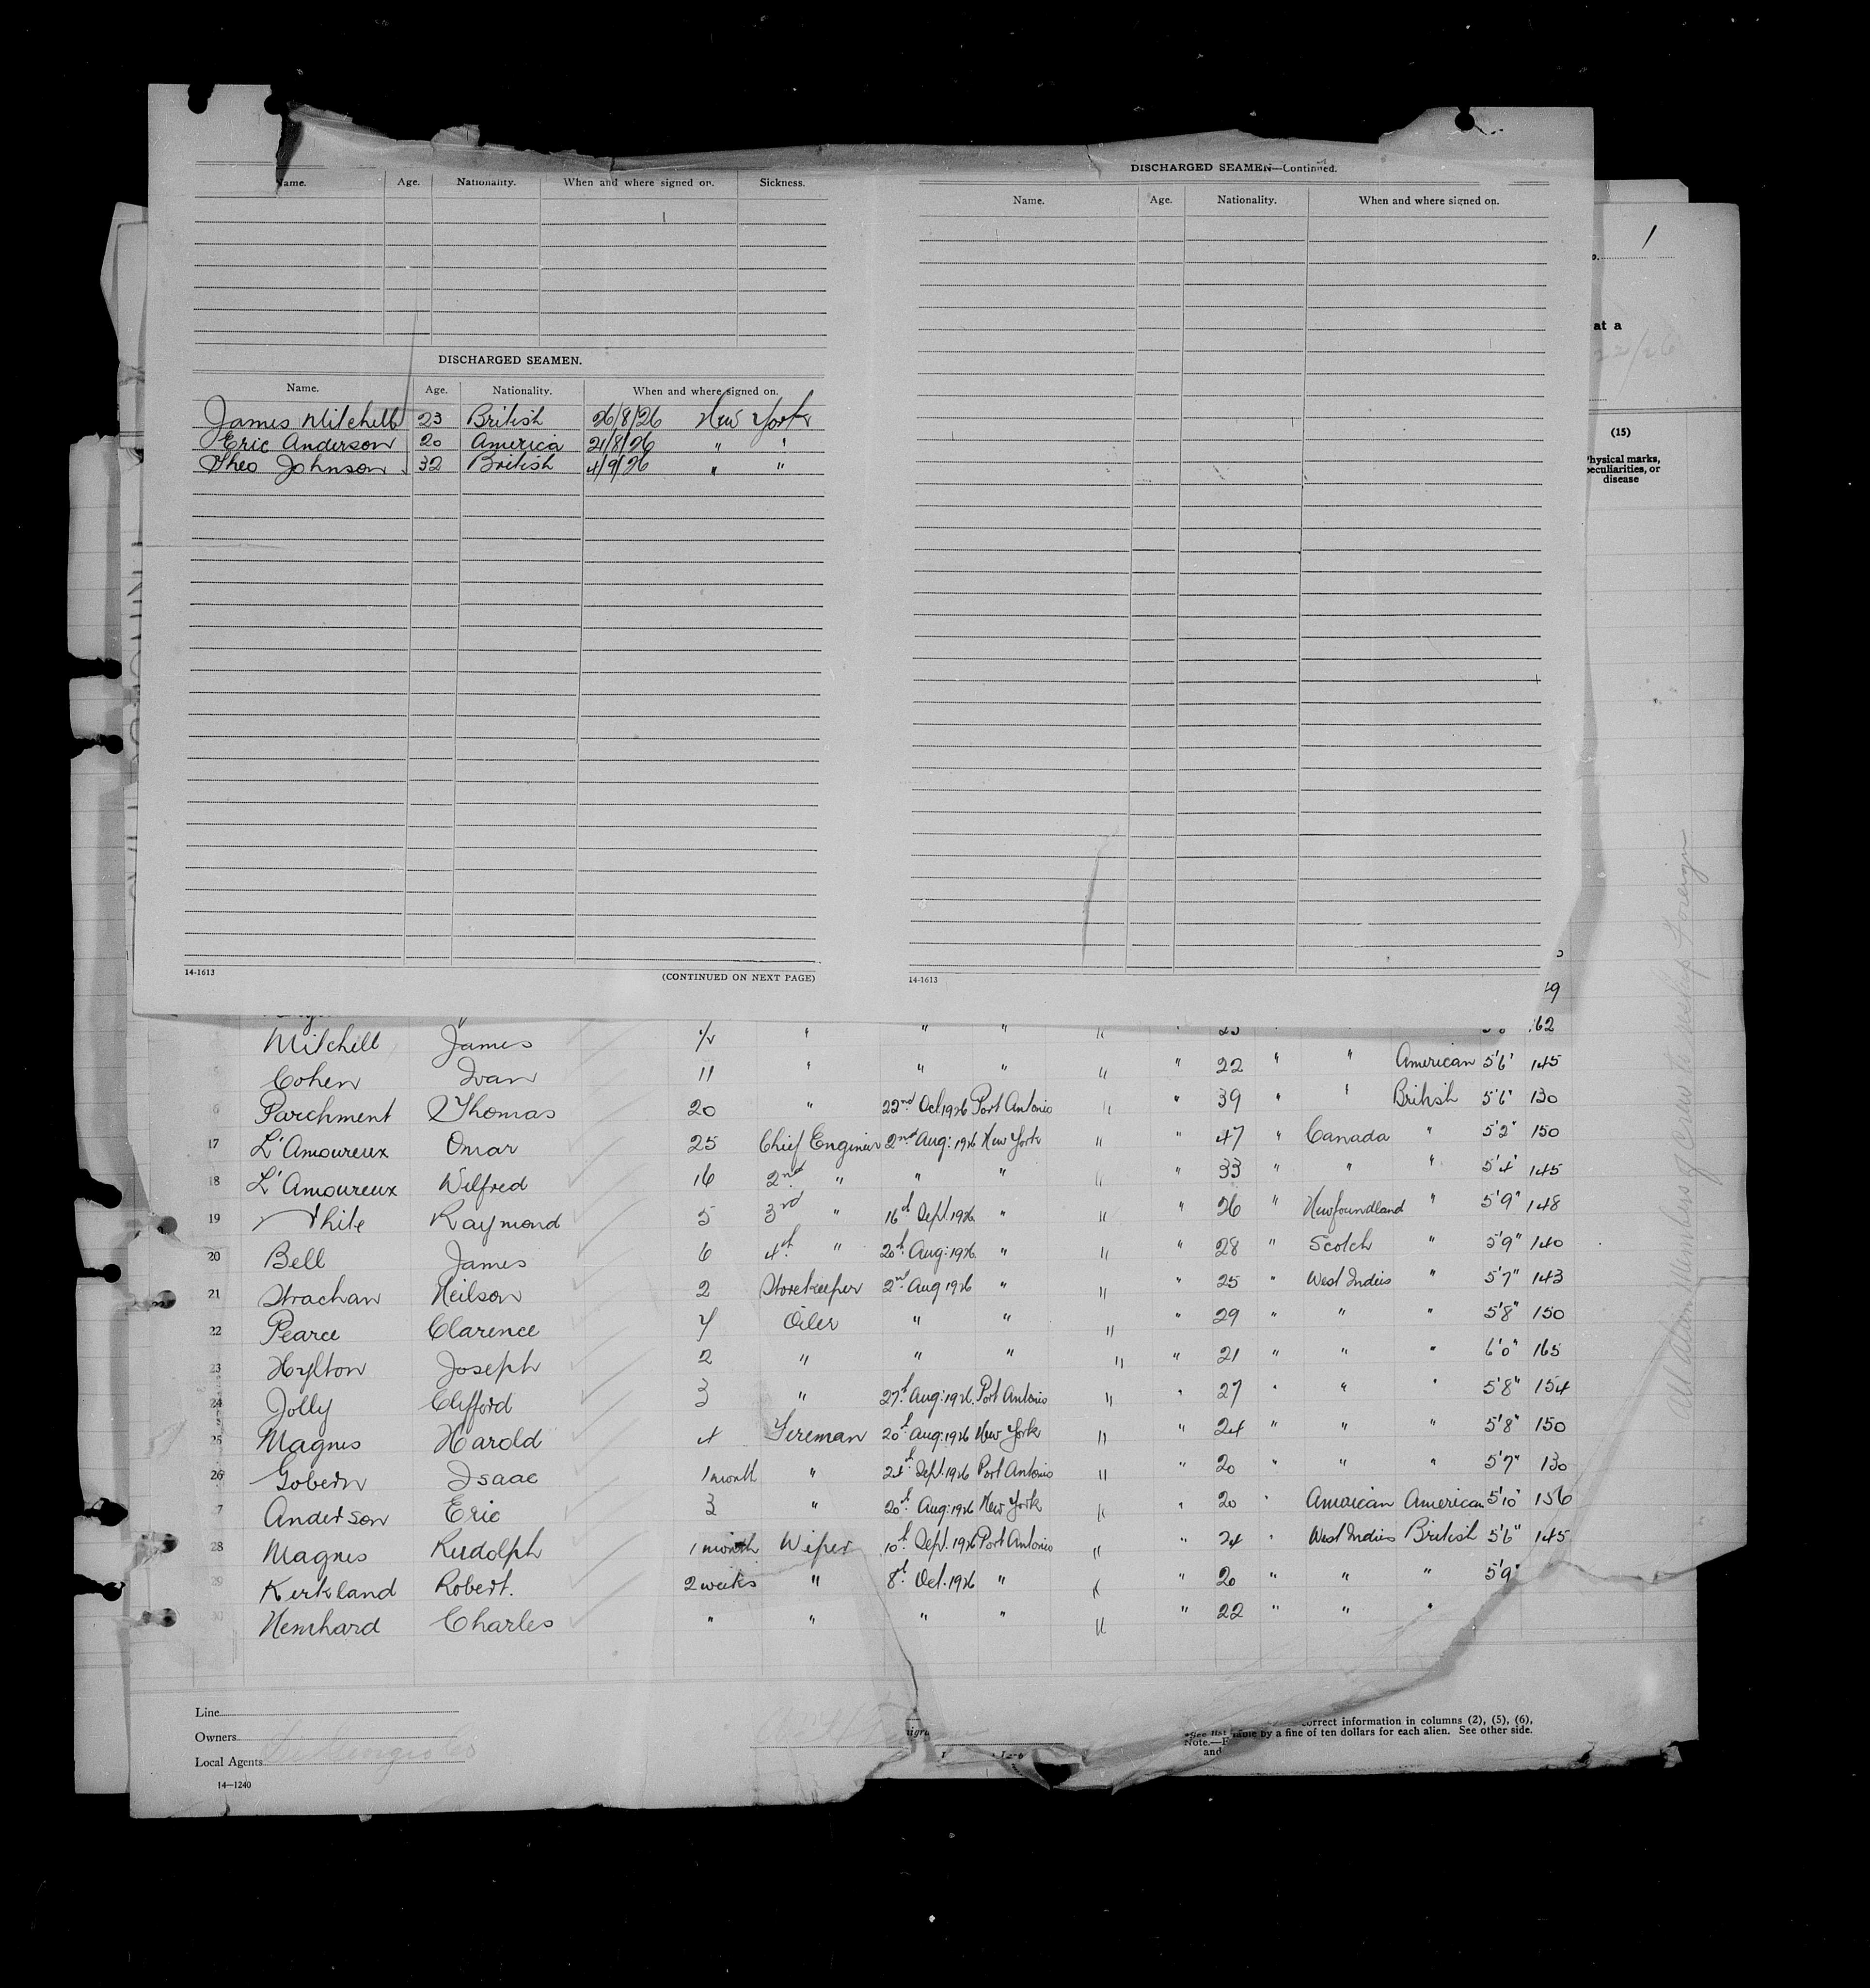 Name. Age. Nationality. When and where signed on. Sickness.
DISCHARGED SEAMEN.
Name. Age. Nationality. When and where signed on.
James Mitchell 23 British 26/8/26 New York
Eric Anderson 20 America 21/8/26 " "
Theo Johnson 32 British 4/9/26 " "
14-1613 (CONTINUED ON NEXT PAGE)
DISCHARGED SEAMEN—Continued.
Name. Age. Nationality. When and where signed on.
14-1613
1
at a
22/26
(15)
Physical marks,
peculiarities, or
disease
All alien members of Crew to reship Foreign
Mitchell James " " " " " 23 162
Cohen Ivan 11 " " " " " 22 " " American 5'6" 145
Parchment Thomas 20 " 22nd Oct 1926 Port Antonio " " 39 " " British 5'6" 130
17 L'Amoureux Omar 25 Chief Enginer 2nd Aug: 1926 New York " " 47 " Canada " 5'2" 150
18 L'Amoureux Wilfred 16 2nd " " " " " 33 " " " 5'4" 145
19 White Raymond 5 3rd " 16th Sept. 1926 " " " 26 " Newfoundland " 5'9" 148
20 Bell James 6 4th " 20th Aug: 1926 " " " 28 " Scotch " 5'9" 140
21 Strachan Neilson 2 Storekeeper 2nd Aug 1926 " " " 25 " West Indies " 5'7" 143
22 Pearce Clarence 7 Oiler " " " " 29 " " " 5'8" 150
23 Hylton Joseph 2 " " " " " 21 " " " 6'0" 165
24 Jolly Clifford 3 " 27th Aug: 1926 Port Antonio " " 27 " " " 5'8" 154
25 Magnus Harold 4 Fireman 20th Aug: 1926 New York " " 24 " " " 5'8" 150
26 Gobern Isaac 1 month " 24th Sept. 1926 Port Antonio " " 20 " " " 5'7" 130
7 Anderson Eric 3 " 20th Aug: 1926 New York " " 20 " American 5'10" 156
28 Magnus Rudolph 1 month Wiper 10th Sept. 1926 Port Antonio " " 24 " West Indies British 5'6" 145
29 Kirkland Robert. 2 weeks " 8th Oct. 1926 " " " 20 " " " 5'9"
30 Hemhard Charles " " " " " " 22 " " "
Line
Owners
Local Agents
14—1240
*See list
correct information in columns (2), (5), (6),
Note.—F
by a fine of ten dollars for each alien. See other side.
and